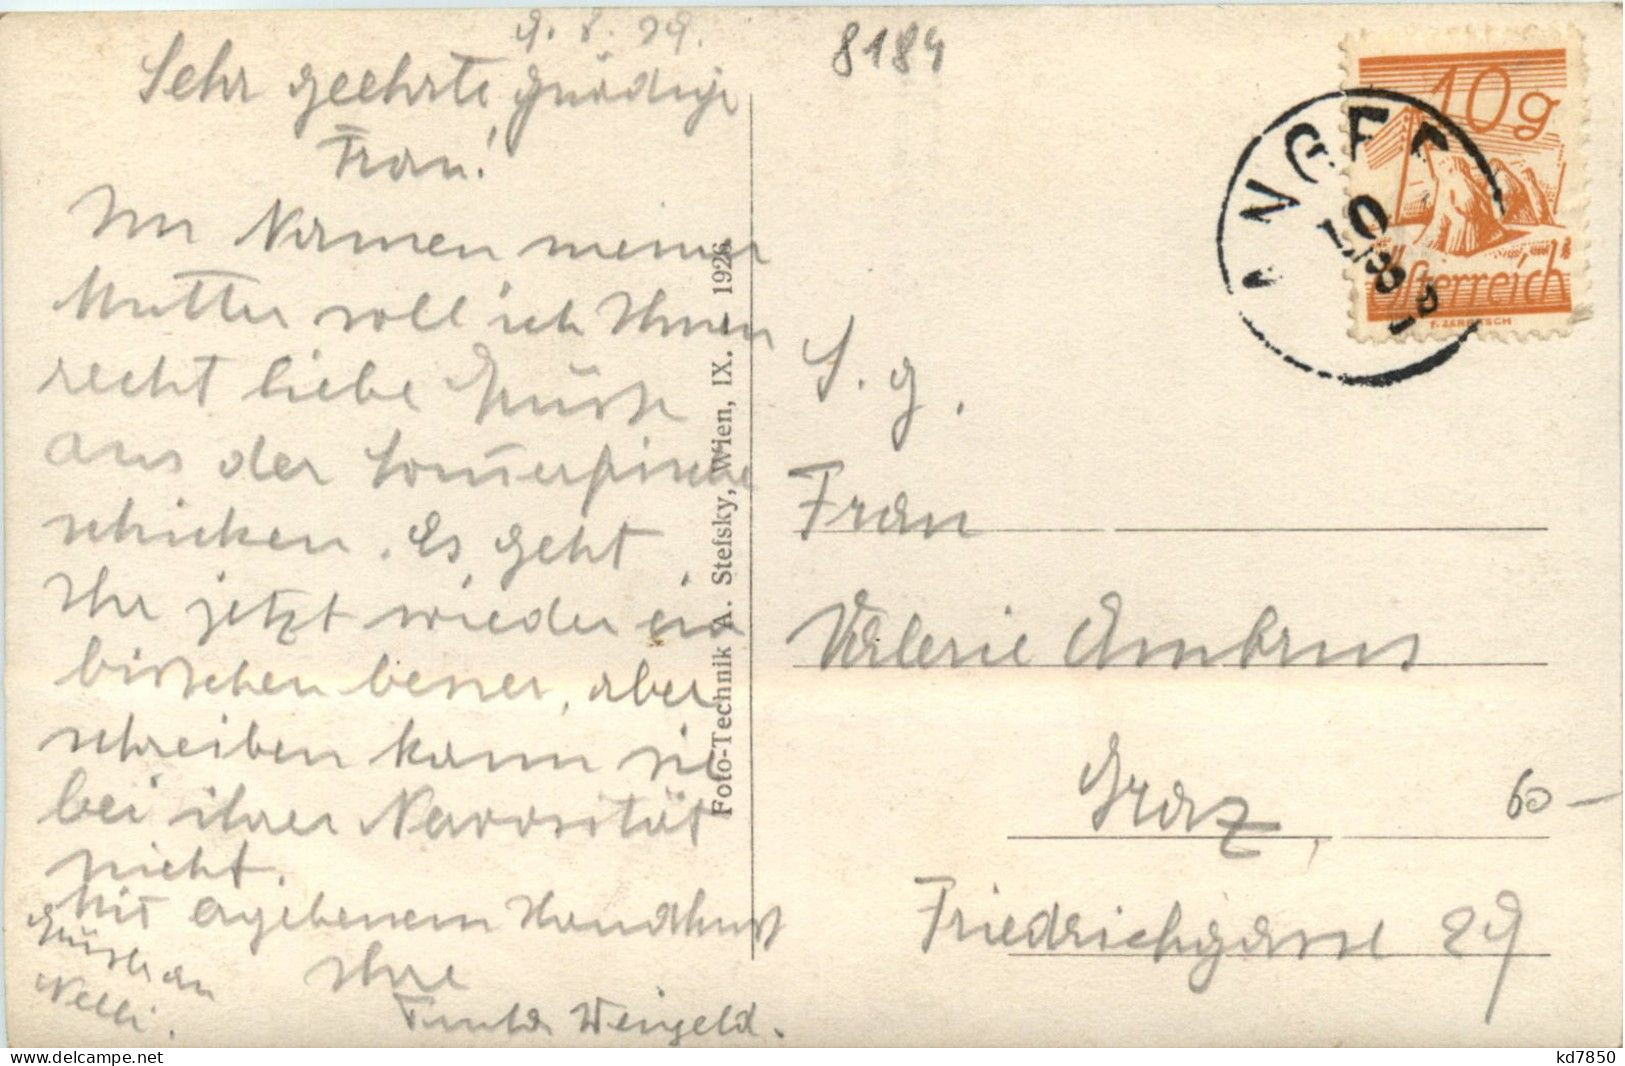 9. 8. 29.
Sehr geehrte gnädige
Frau!
Im Namen meiner
Mutter soll ich Ihnen
recht liebe Grüsse
aus der Sommerfrische
schicken. Es geht
Ihr jetzt wieder ein
bisschen besser, aber
schreiben kann sie
bei ihrer Nervosität
nicht.
Mit ergebenem Handkuss
Ihre
Weigeld.
Grüsse an
Nelli.
Foto-Technik A. Stefsky, Wien, IX. 1926
8184
10g
Österreich
ANGER
10
S. g.
Frau
Valerie Ambrus
Graz,
60 –
Friedrichgasse 29
kd7850
www.delcampe.net